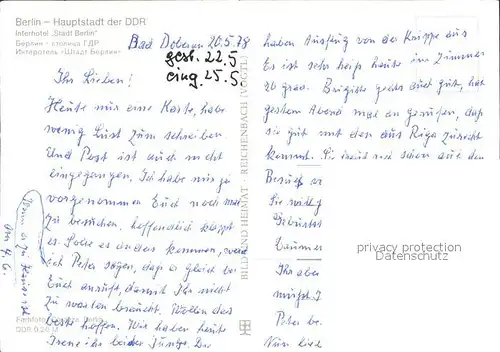 Berlin – Hauptstadt der DDR
Interhotel „Stadt Berlin"
Берлин – столица ГДР
Интеротель «Штадт Берлин»
Bad Doberan 20.5.78
gest. 22.5
eing. 25.5.
Ihr Lieben!
Heute nur eine Karte, habe
wenig Lust zum schreiben.
Und Post ist auch nicht
eingegangen. Ich habe mir ja
vorgenommen Euch noch mal
zu besuchen, hoffentlich klappt
es. Sollte es anders kommen, werd
ich Peter sagen, daß er gleich bei
Euch anruft, damit Ihr nicht
zu warten braucht. Wollen das
beste hoffen. Wir haben heute
Irene ihr beider Jungs. Die
am 4.6.
haben Ausflug von der Krippe aus
Es ist sehr heiß heute im Zimmer
26 grad. Brigitte gehts auch gut, hat
gestern Abend mal an gerufen, daß
sie gut mit den aus Riga zurecht
kommt. Sie freut sich schon auf den
Besuch
Sie will
Geburtst
Daumen
Ihr aber
müßt
Peter be
Nun
BILD UND HEIMAT · REICHENBACH (VOGTL)
privacy protection
Datenschutz
DDR 0,20 M